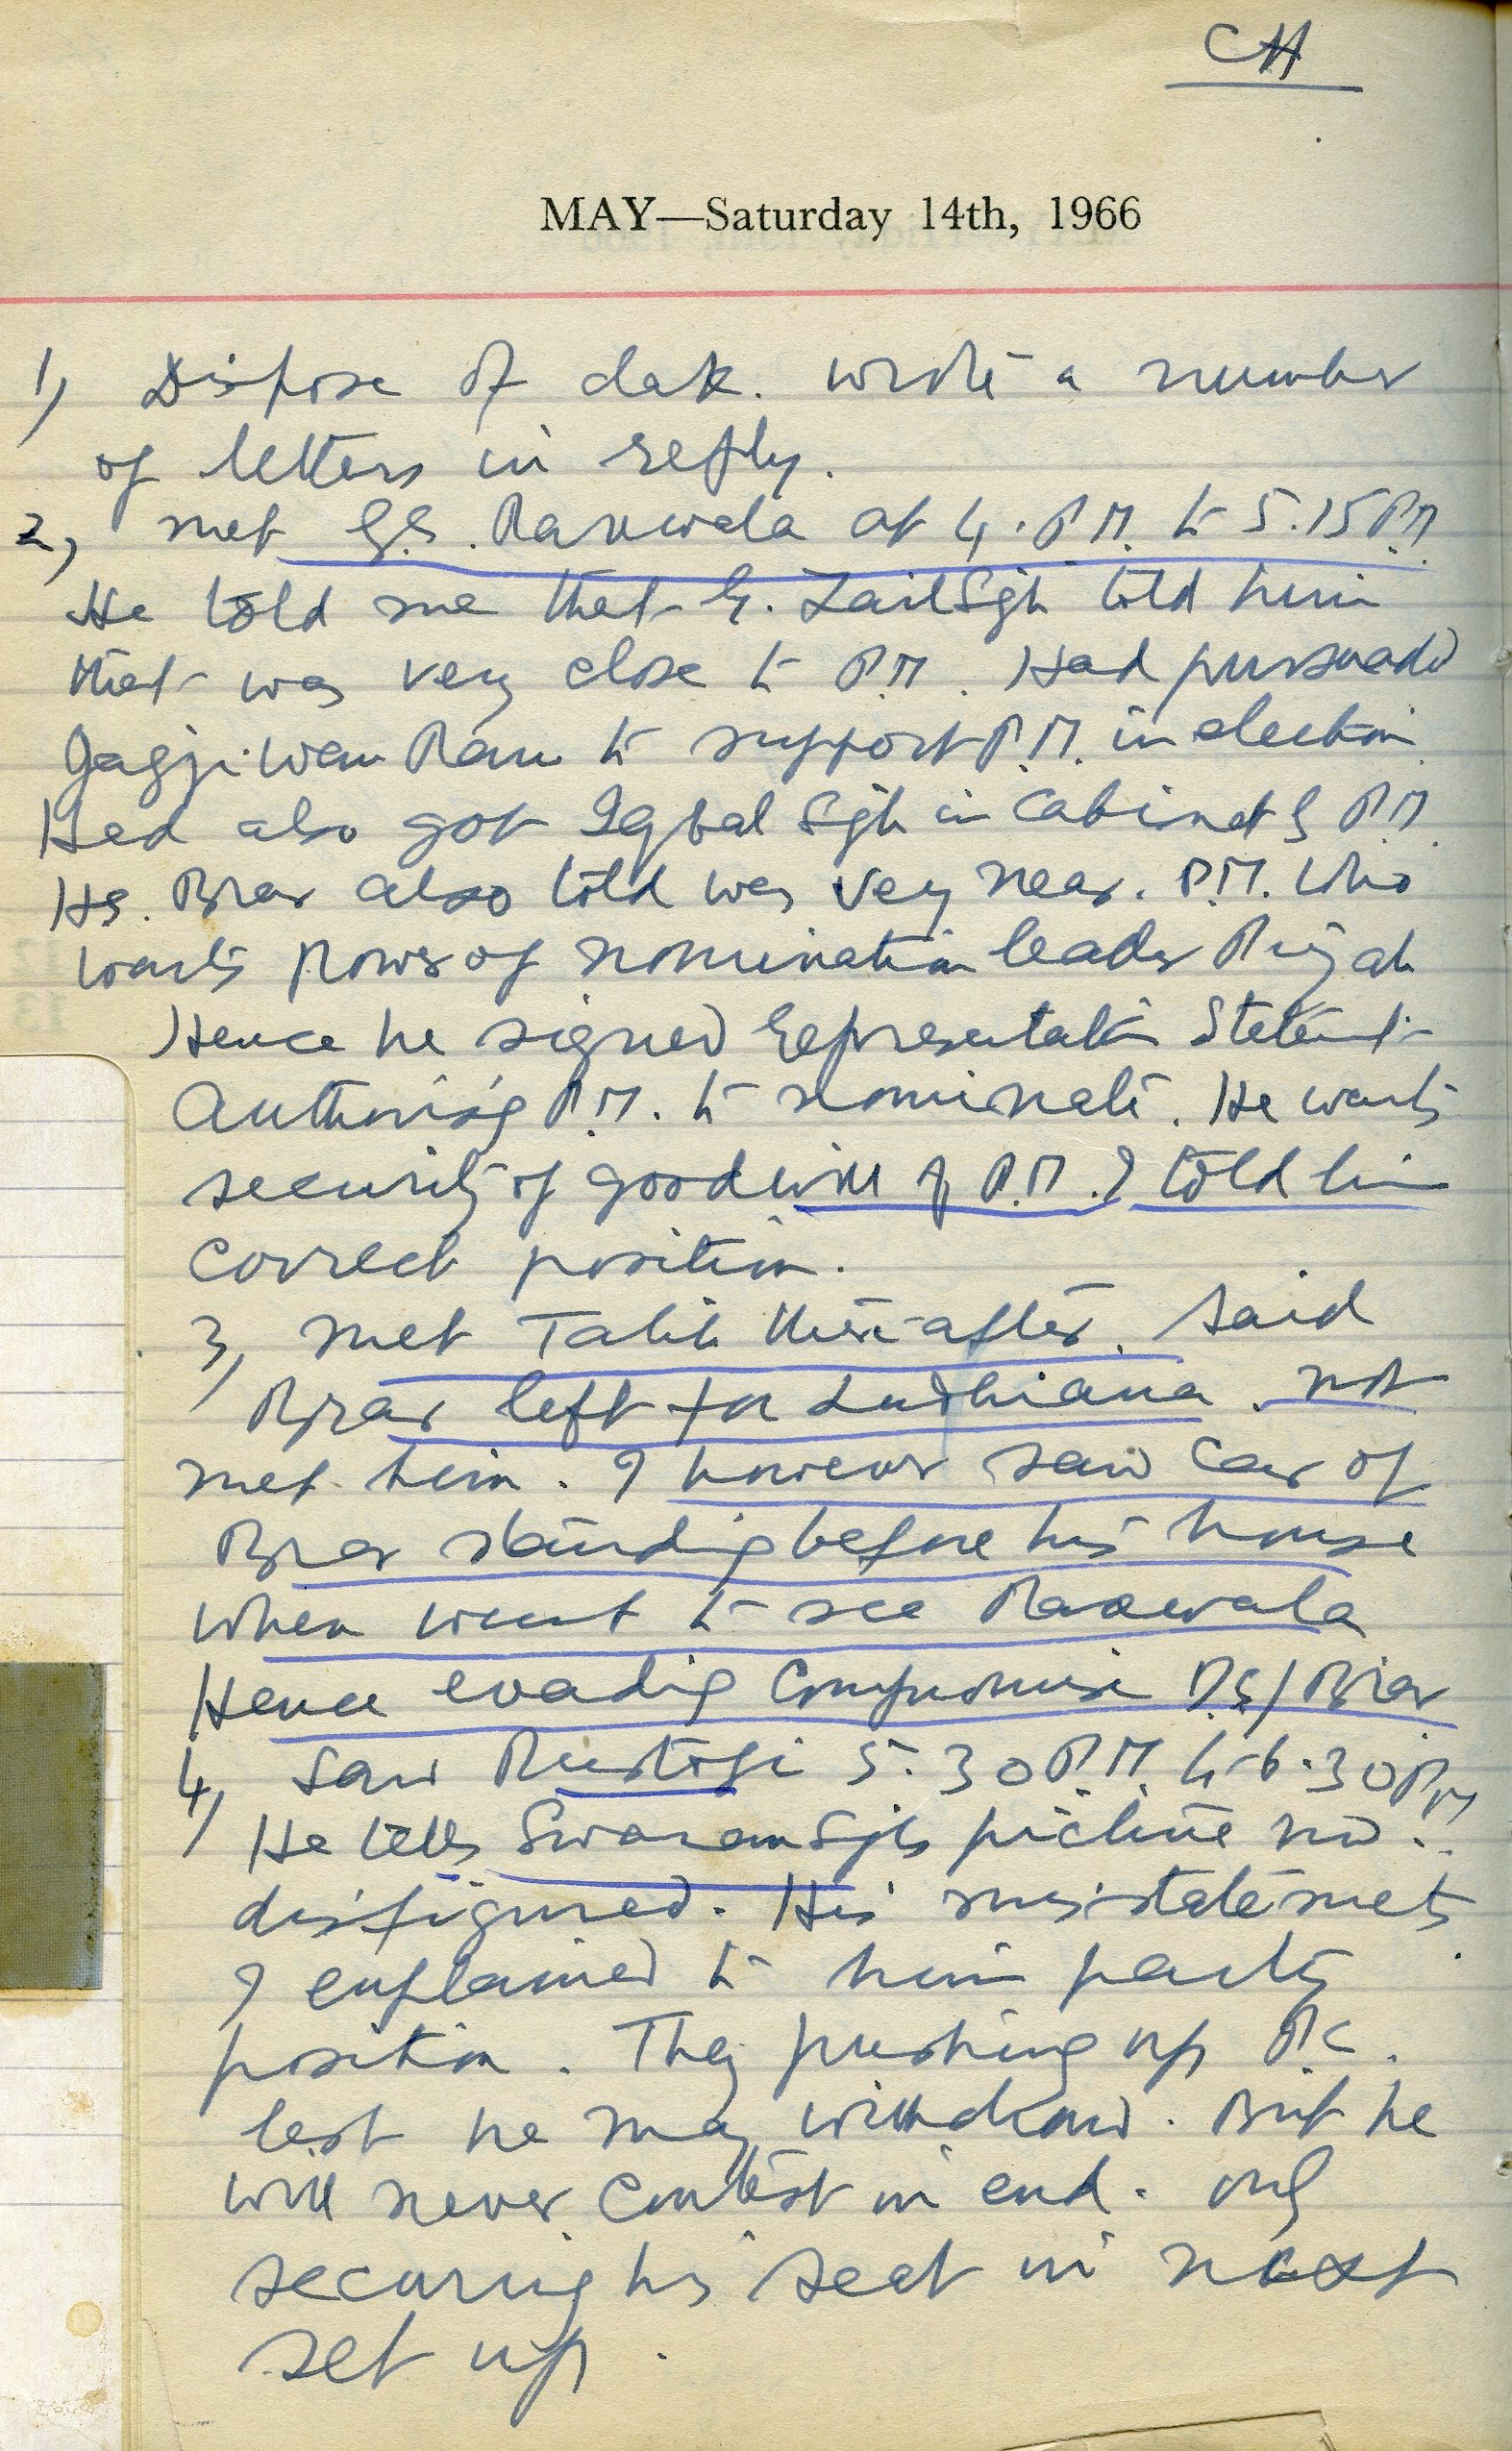 CH
MAY—Saturday 14th, 1966
1, Dispose of dak. wrote a number
of letters in reply.
2, met G.S. Rarewala at 4. P.M. to 5.15 P.M
He told me that G. Zail Sgh told him
that was very close to P.M. Had pursuaded
Jagjiwan Ram to support P.M. in election
Had also got Iqbal Sgh in Cabinet of P.M.
HS. Brar also told was very near. P.M. who
wants power of nomination leader Punjab
Hence he signed representation Statemt
Authorisig P.M. to nominate. He wants
security of goodwill of P.M. I told him
correct position.
3, met Talib thereafter. Said
Brar left for Ludhiana. not
met him. I however saw car of
Brar standig before his house
when went to see Rarewala
Hence evadig Compromise DS/Brar
4, Saw Rustogi 5.30 P.M. to 6.30 PM
He tells Swaran Sgh picture now
disfigured. His misstatemets
I explained to him party
position. They pushing up
lest he may withdraw. But he
will never contest in end. only
securing his seat in next
set up.